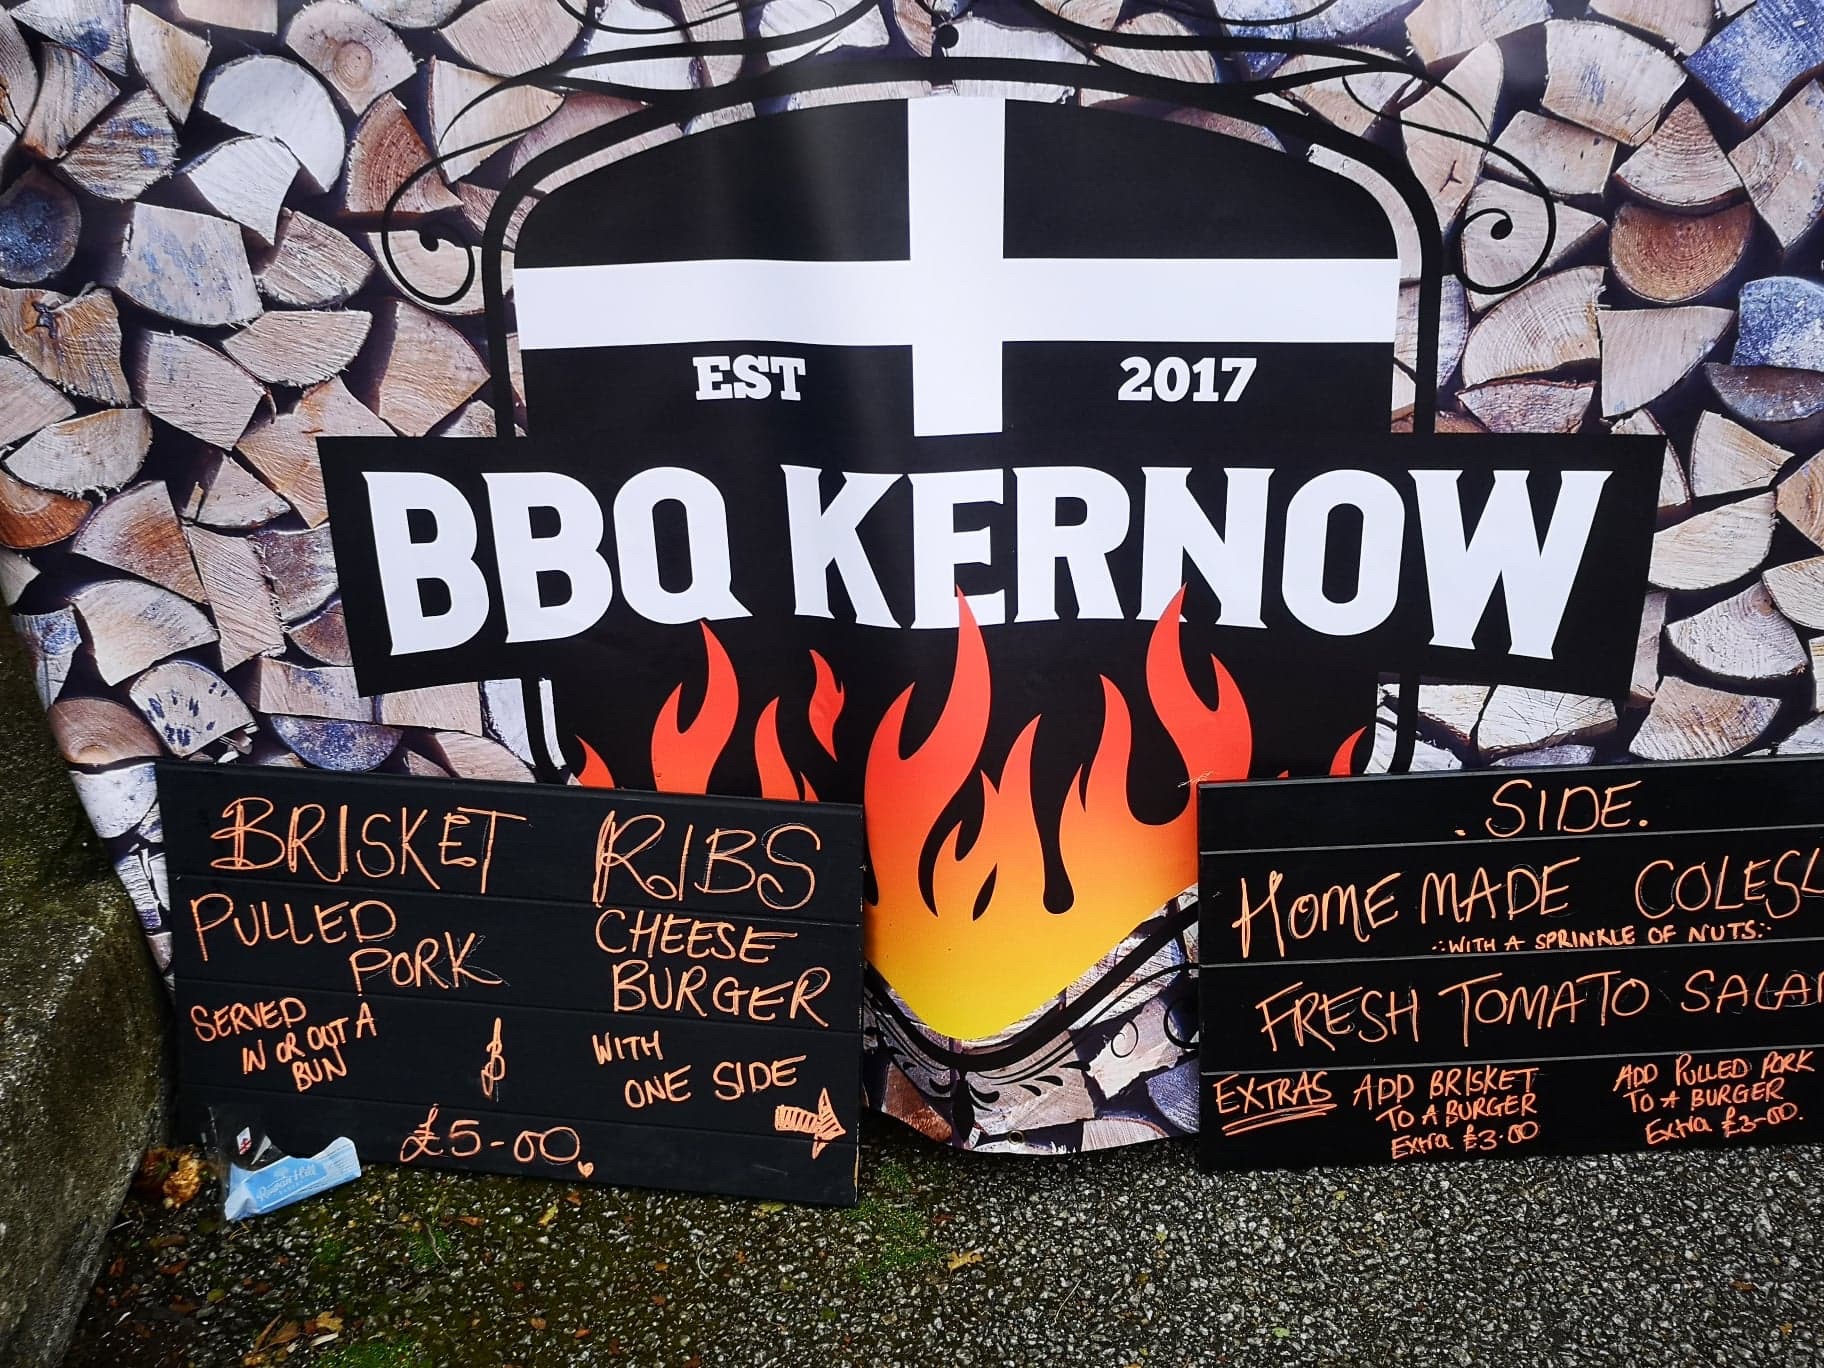 EST 2017
BBQ KERNOW
BRISKET RIBS
PULLED
PORK
CHEESE
BURGER
SERVED
IN OR OUT A
BUN
&
WITH
ONE SIDE
£5-00
.SIDE.
HOME MADE COLESL
WITH A SPRINKLE OF NUTS
FRESH TOMATO SALA
EXTRAS
ADD BRISKET
TO A BURGER
Extra £3.00
ADD PULLED PORK
TO A BURGER
Extra £3-00.